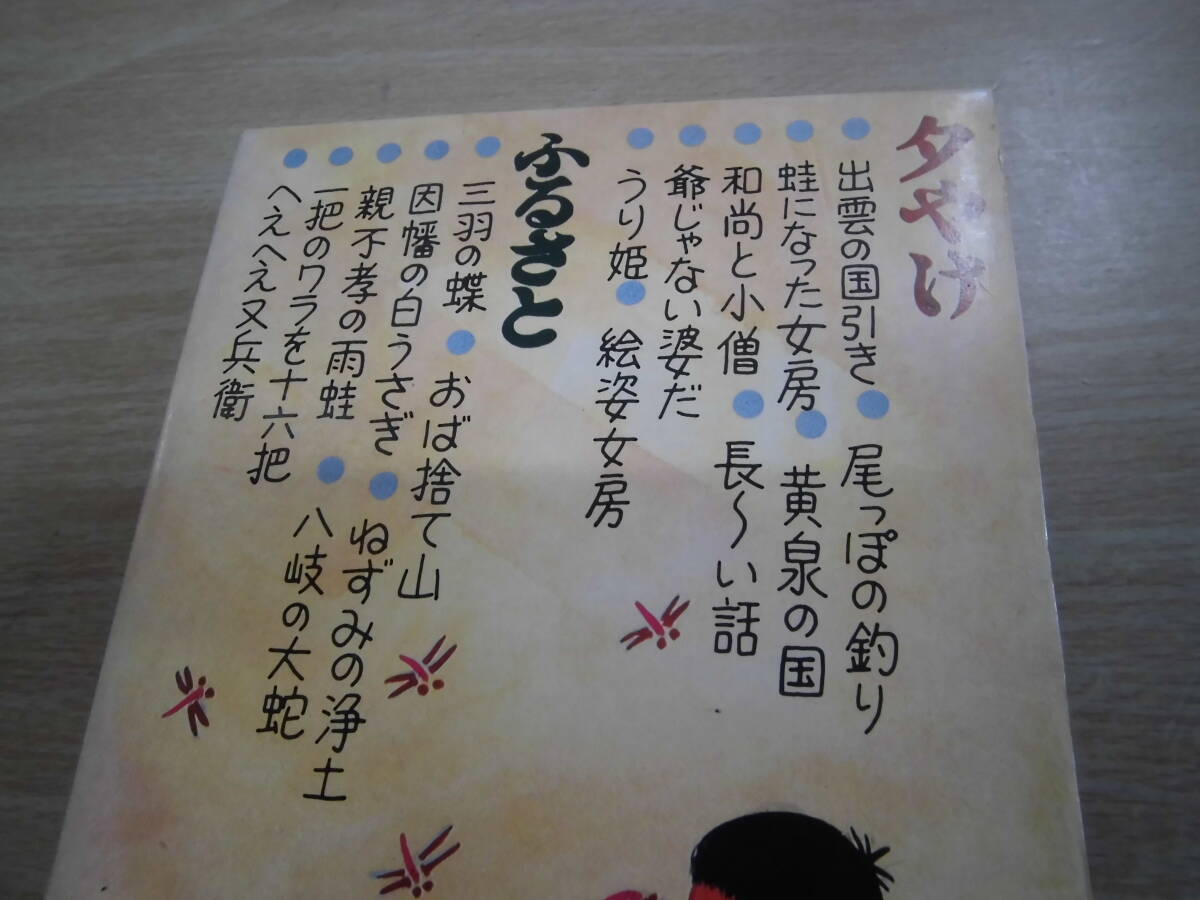 夕やけ
●出雲の国引き●尾っぽの釣り
●蛙になった女房●黄泉の国
●和尚と小僧●長〜い話
●爺じゃない婆だ
●うり姫●絵姿女房
ふるさと
●三羽の蝶●おば捨て山
●因幡の白うさぎ●ねずみの浄土
●親不孝の雨蛙●八岐の大蛇
●一把のワラを十六把
●へえへえ又兵衛